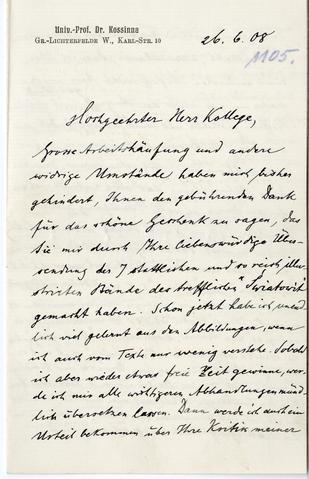 Univ.-Prof. Dr. Kossinna
Gr.-Lichterfelde W., Karl-Str. 10
26.6.08
1105.
Hochgeehrter Herr Kollege,
Grosse Arbeitshäufung und andere
widrige Umstände haben mich bisher
gehindert, Ihnen den gebührenden Dank
für das schöne Geschenk zu sagen, das
Sie mir durch Ihre liebenswürdige Über-
sendung der 7 stattlichen und so reich illu-
strierten Bände des trefflichen "Światowit"
gemacht haben. Schon jetzt habe ich unend-
lich viel gelernt aus den Abbildungen, wenn
ich auch vom Texte nur wenig verstehe. Sobald
ich aber wieder etwas freie Zeit gewinne, wer-
de ich mir alle wichtigeren Abhandlungen münd-
lich übersetzen lassen. Dann werde ich auch ein
Urteil bekommen über Ihre Kritik meiner